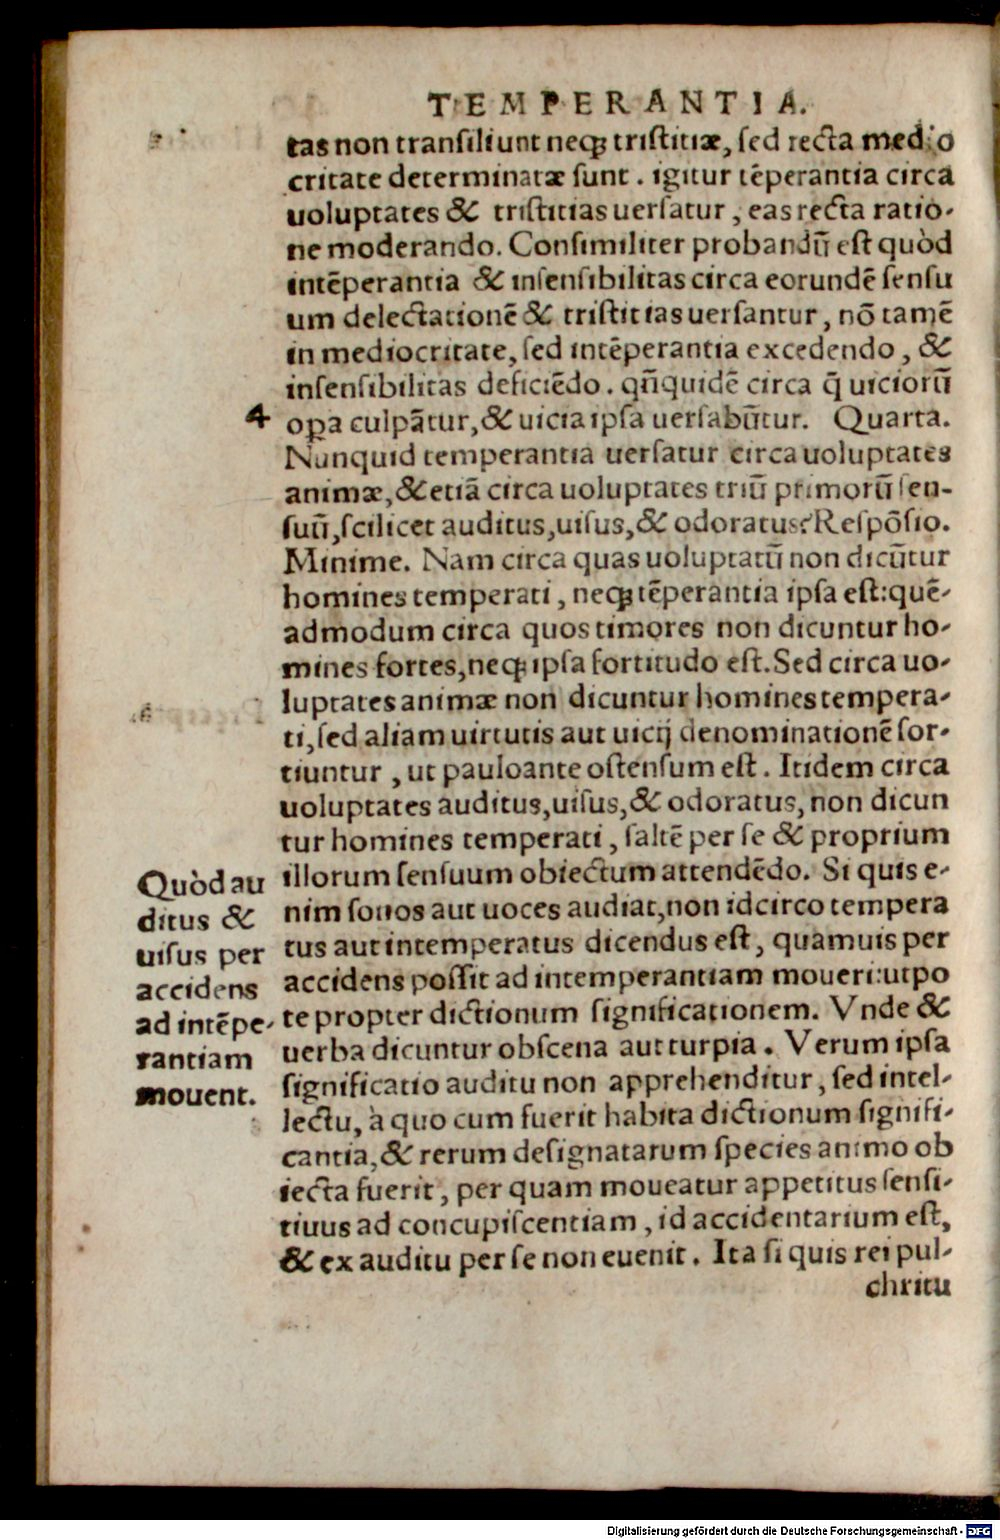 TEMPERANTIA.
tas non tranſiliunt neqꝫ triſtitiæ, ſed recta medio
critate determinatæ ſunt. igitur tẽperantia circa
uoluptates & triſtitias uerſatur, eas recta ratio-
ne moderando. Conſimiliter probandũ eſt quòd
intẽperantia & inſenſibilitas circa eorundẽ ſenſu
um delectationẽ & triſtitias uerſantur, nõ tamẽ
in mediocritate, ſed intẽperantia excedendo, &
inſenſibilitas deficiẽdo. qñquidẽ circa q̃ uiciorũ
4 oꝑa culpãtur, & uicia ipſa uerſabũtur. Quarta.
Nunquid temperantia uerſatur circa uoluptates
animæ, & etiã circa uoluptates triũ primorũ ſen-
ſuũ, ſcilicet auditus, uiſus, & odoratus? Reſpõſio.
Minime. Nam circa quas uoluptatũ non dicũtur
homines temperati, neqꝫ tẽperantia ipſa eſt: quẽ-
admodum circa quos timores non dicuntur ho-
mines fortes, neqꝫ ipſa fortitudo eſt. Sed circa uo-
luptates animæ non dicuntur homines tempera-
ti, ſed aliam uirtutis aut uicij denominationẽ ſor-
tiuntur, ut pauloante oſtenſum eſt. Itidem circa
uoluptates auditus, uiſus, & odoratus, non dicun
tur homines temperati, ſaltẽ per ſe & proprium
illorum ſenſuum obiectum attendẽdo. Si quis e-
nim ſonos aut uoces audiat, non idcirco tempera
tus aut intemperatus dicendus eſt, quamuis per
accidens poſſit ad intemperantiam moueri: utpo
te propter dictionum ſignificationem. Vnde &
uerba dicuntur obſcena aut turpia. Verum ipſa
ſignificatio auditu non apprehenditur, ſed intel-
lectu, à quo cum fuerit habita dictionum ſignifi-
cantia, & rerum deſignatarum ſpecies animo ob
iecta fuerit, per quam moueatur appetitus ſenſi-
tiuus ad concupiſcentiam, id accidentarium eſt,
& ex auditu per ſe non euenit. Ita ſi quis rei pul-
chritu
Quòd au
ditus &
uiſus per
accidens
ad intẽpe-
rantiam
mouent.
Digitalisierung gefördert durch die Deutsche Forschungsgemeinschaft - DFG